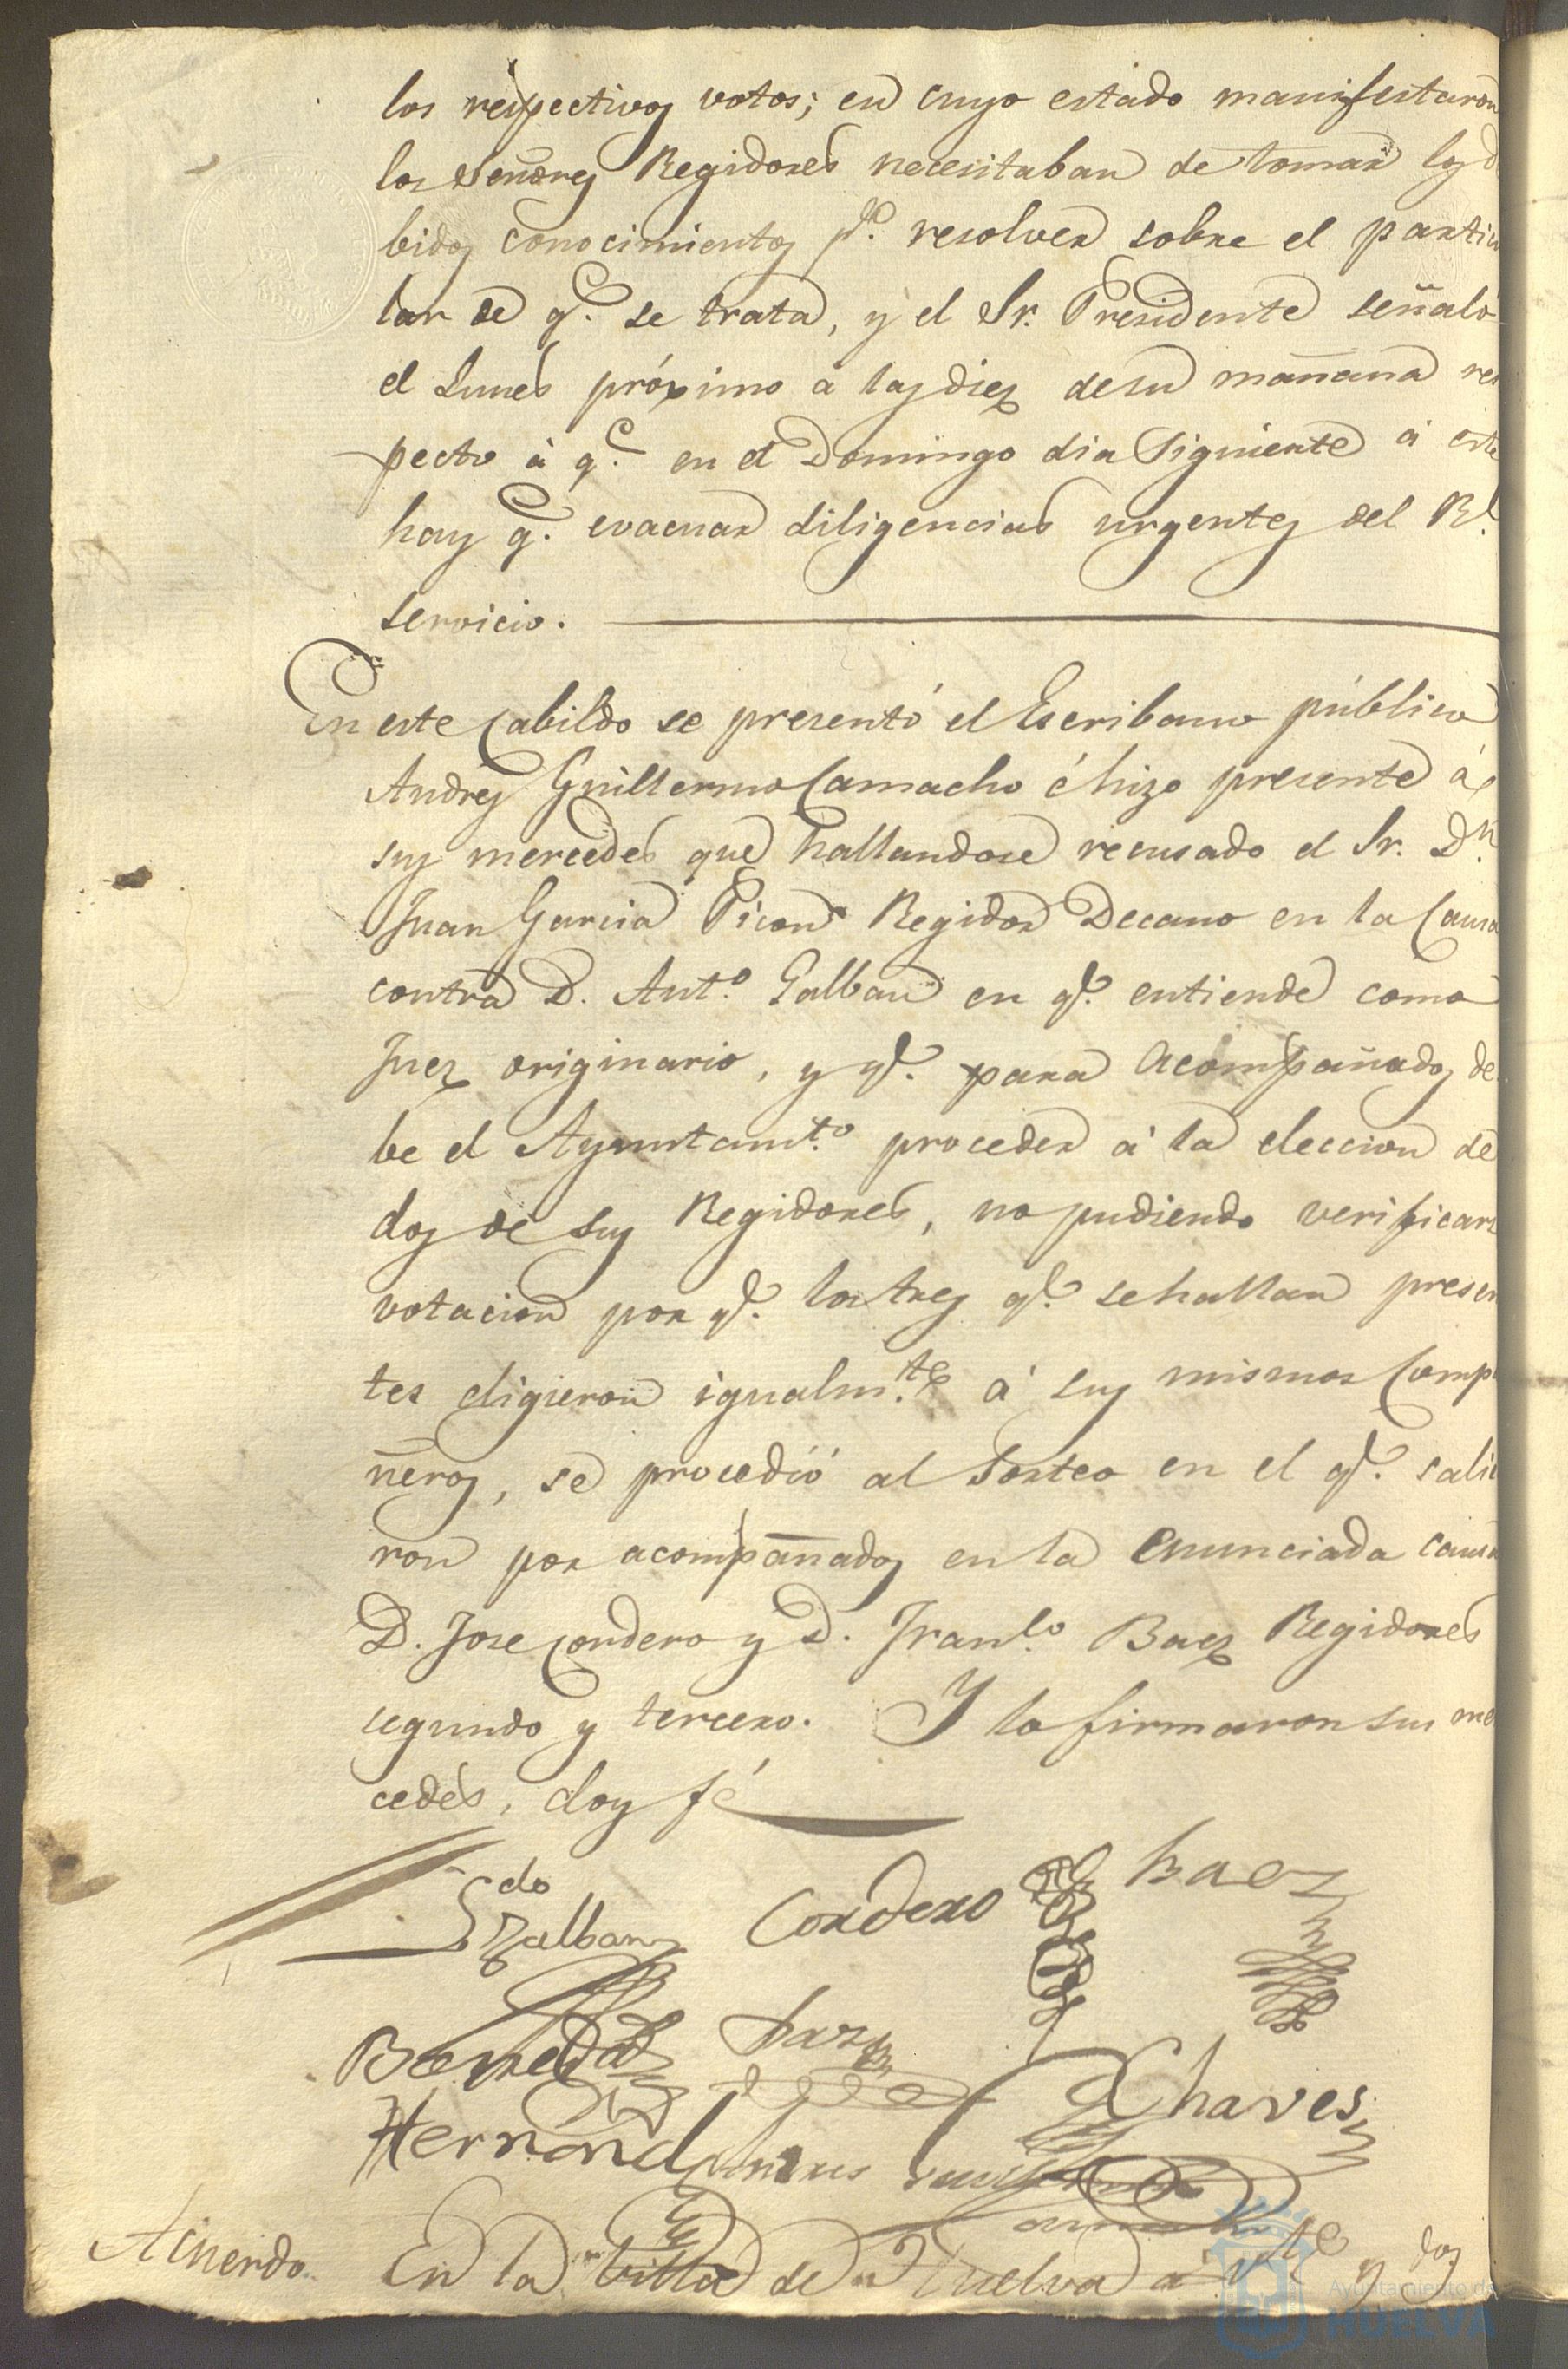 los respectivos votos; en cuyo estado manifestaron
los Señores Regidores necesitaban de tomar los d
bidos conocimientos p.ª resolver sobre el particu
lar de q.e se trata, y el Sr. Presidente señaló
el Lunes próximo a las diez de su mañana res
pecto à q.e en el Domingo dia Siguiente á este
hay q.e evacuar diligencias urgentes del R.l
servicio.
En este Cabildo se presentó el Escribano público
Andres Guillermo Camacho é hizo presente á
sus mercedes que hallandose recusado el Sr. D.n
Juan Garcia Picon Regidor Decano en la Causa
contra D. Ant.o Galban en q.e entiende como
Juez originario, y q.e para Acompañados de
be el Ayuntam.to proceder á la eleccion de
dos de sus Regidores, no pudiendo verificars
votacion por q.e los tres q.e se hallan presen
tes eligieron igualm.te á sus mismos Compa
ñeros, se procedió al Sorteo en el q.e salie
ron por acompañados en la enunciada causa
D. Jose Cordero y D. Fran.co Baez Regidores
segundo y tercero. Y lo firmaron sus me
cedes, doy fé
Galban Cordero Baez
Chaves
Hernand
Acuerdo En la Villa de Huelva á v.te y dos
Ayuntamiento de
HUELVA